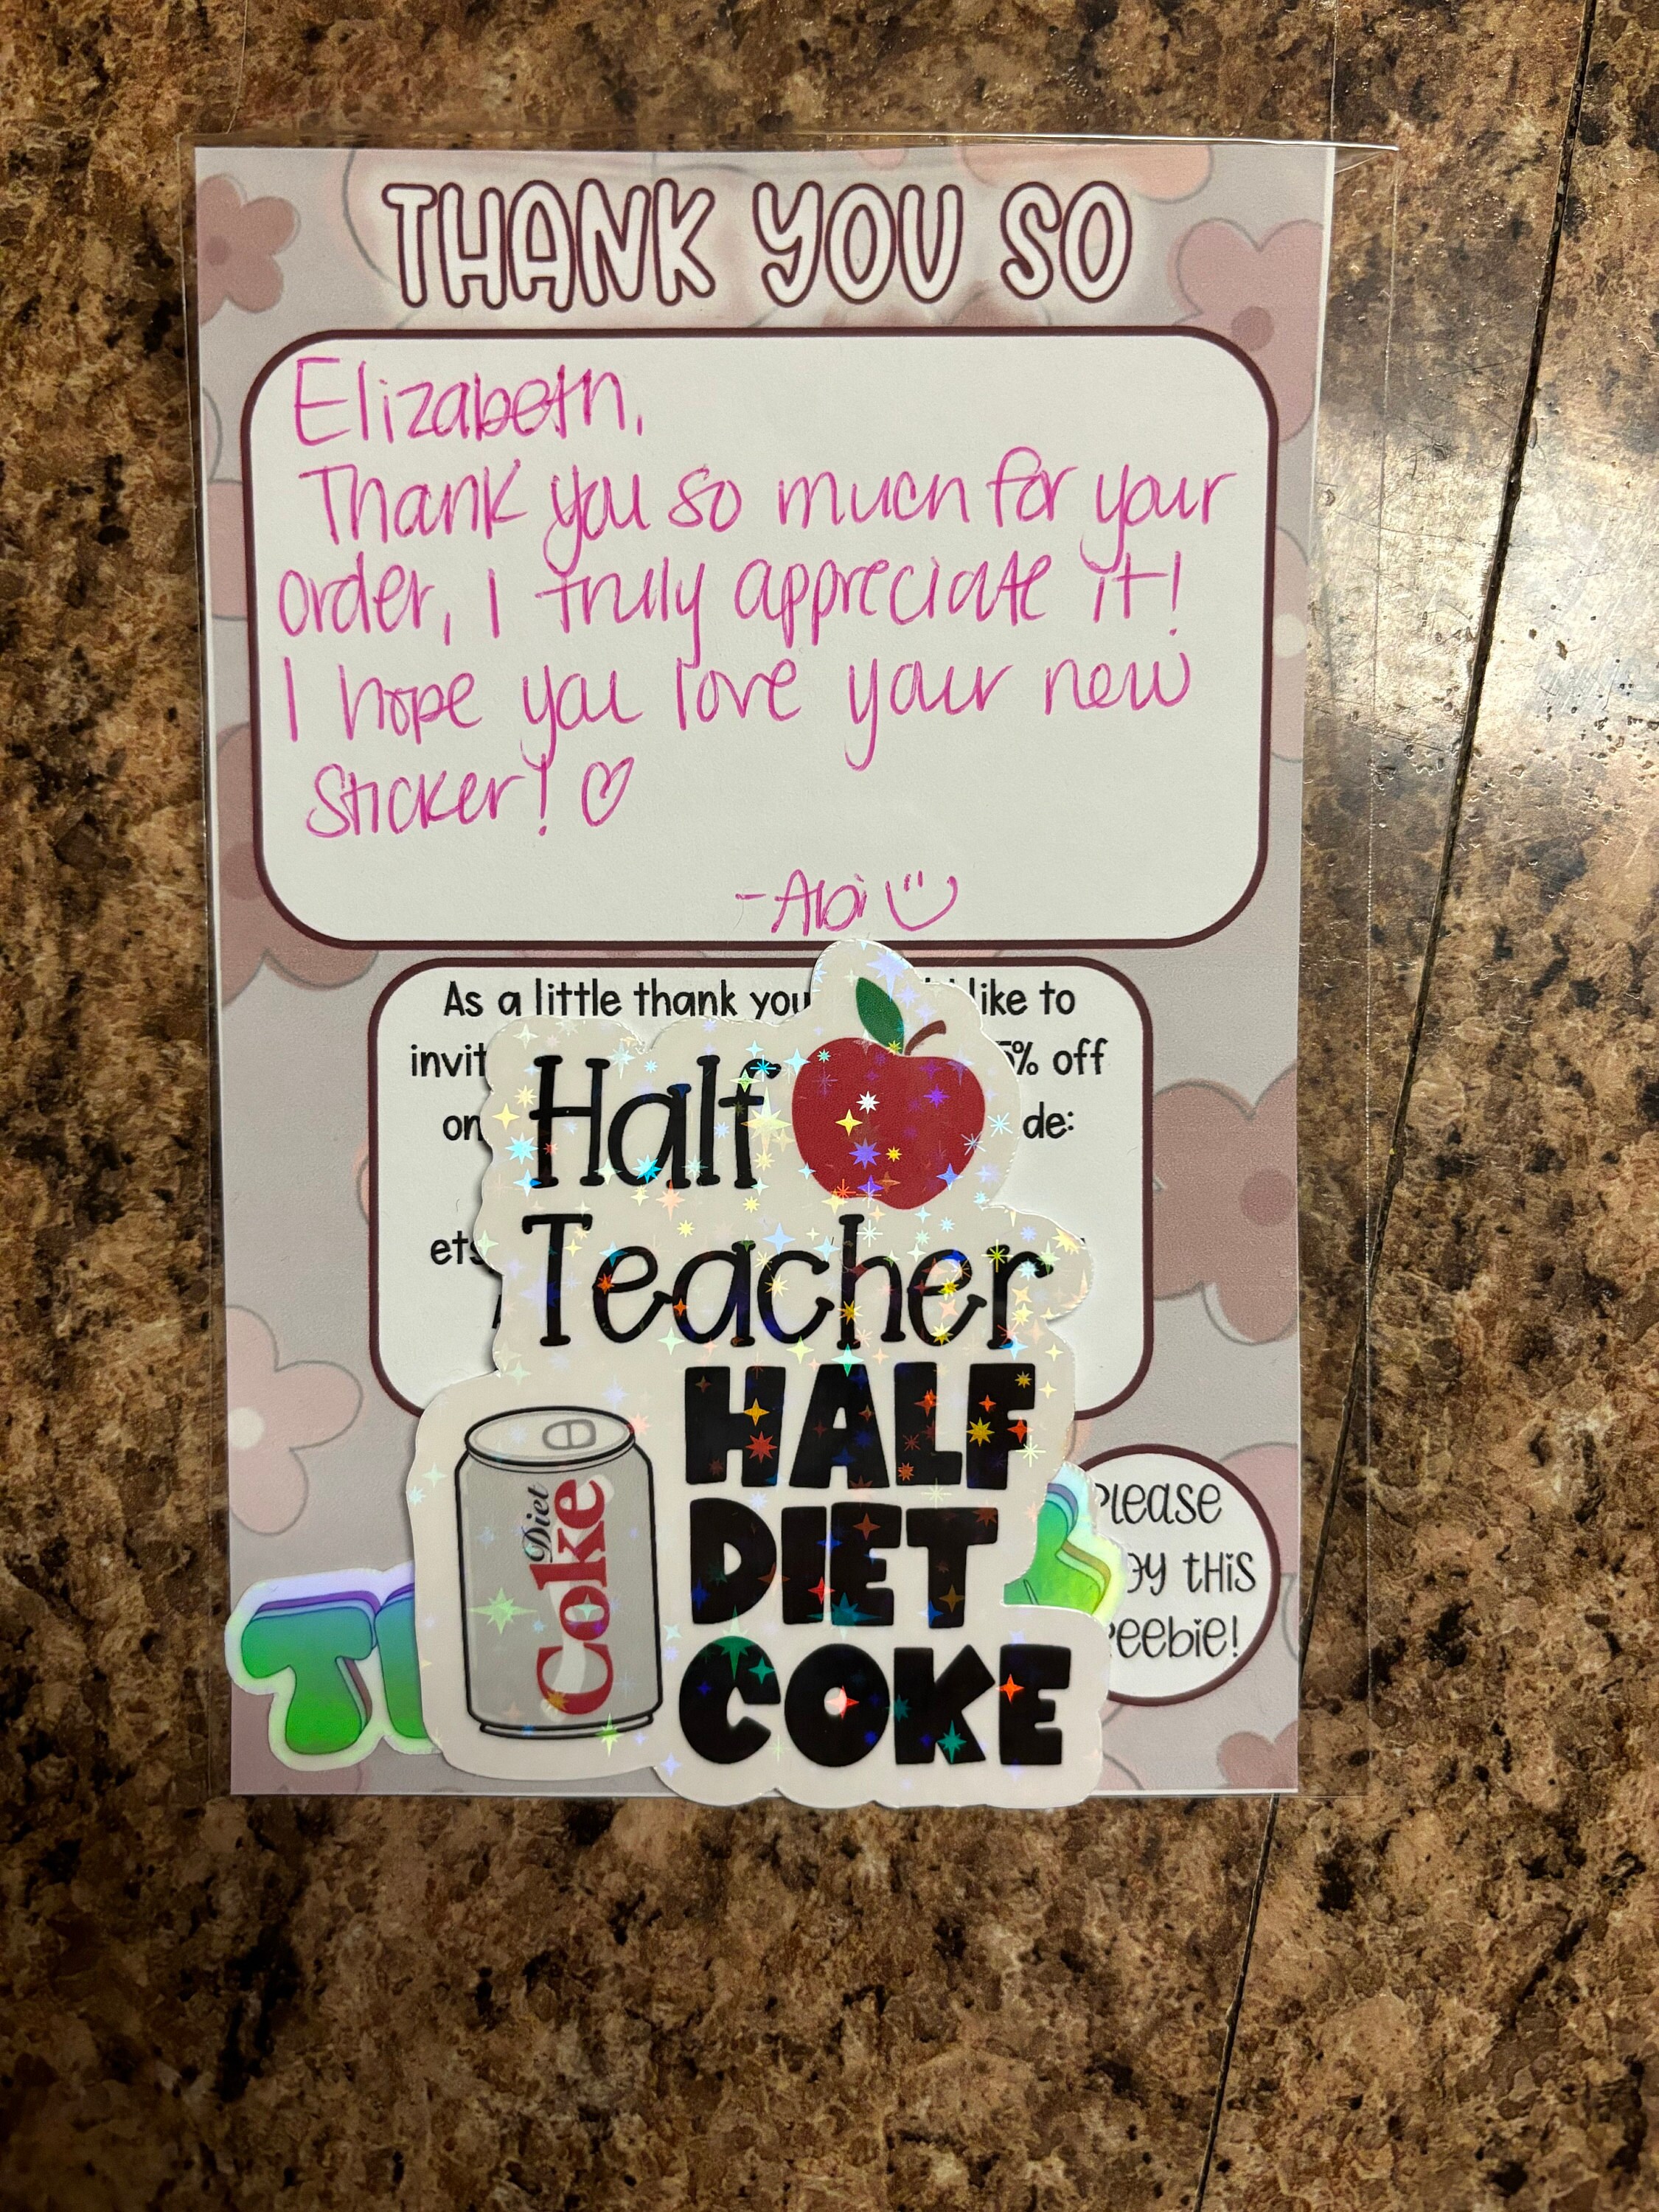 THANK YOU SO
Elizabeth,
Thank you so much for your
order, I truly appreciate it!
I hope you love your new
Sticker! ♡
-Abi
As a little thank you like to
% off
Half
Teacher
HALF
DIET
COKE
Diet
Coke
Please
this